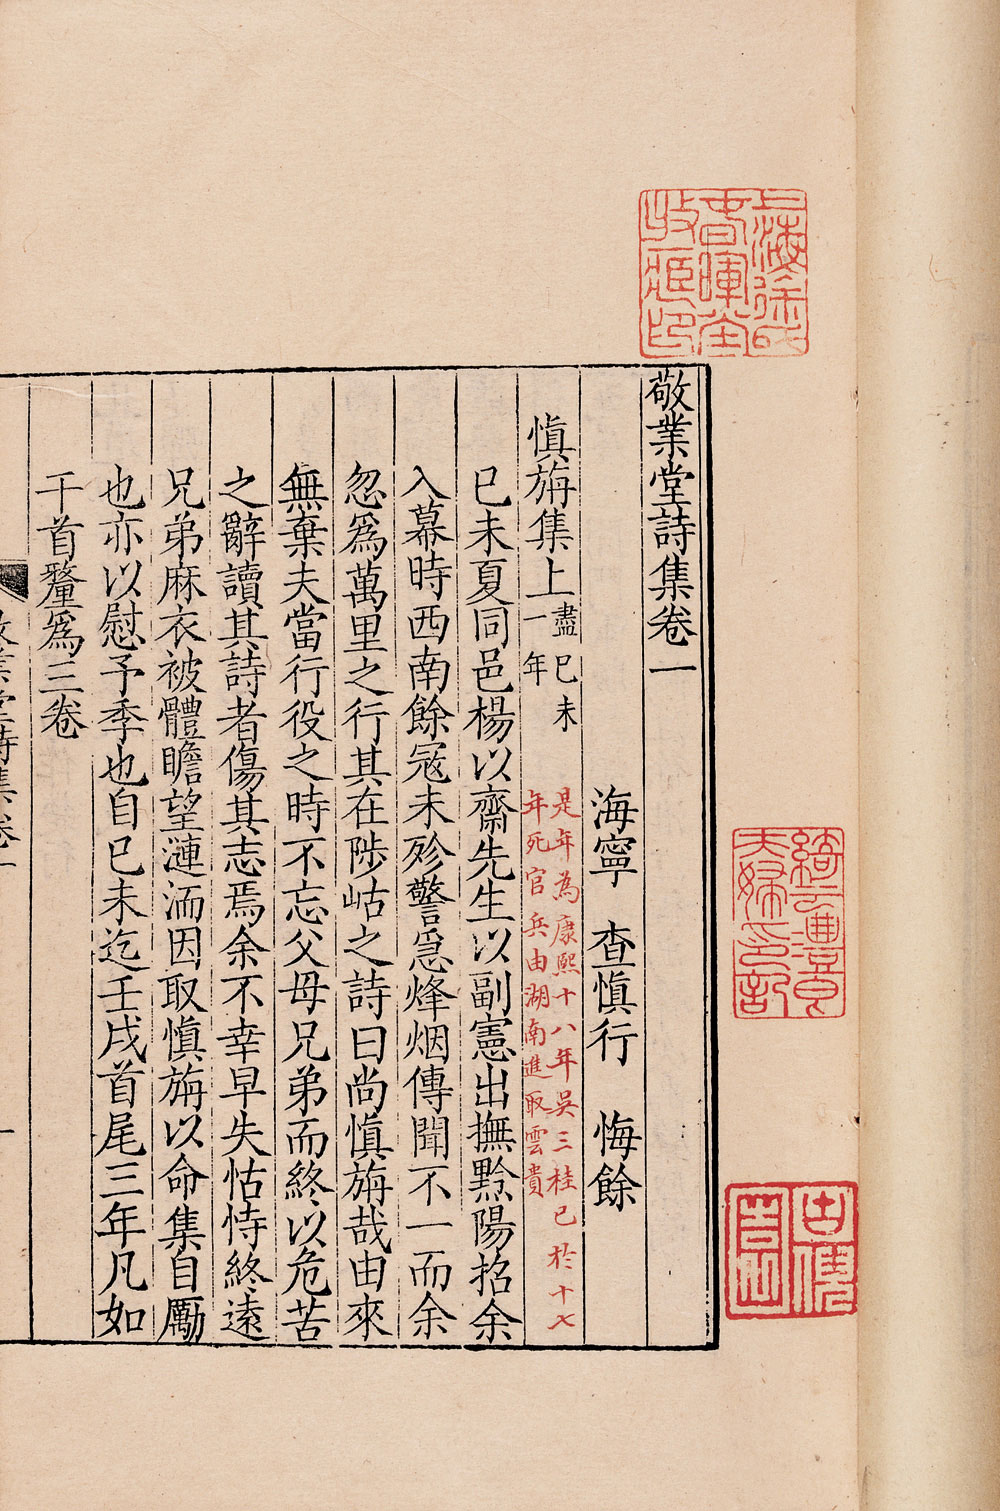 敬業堂詩集卷一
海寧 查慎行 悔餘
慎旃集上 盡己未一年
是年為康熙十八年吳三桂已於十七
年死官兵由湖南進取雲貴
已未夏同邑楊以齋先生以副憲出撫黔陽招余
入幕時西南餘寇未殄警急烽烟傳聞不一而余
忽為萬里之行其在陟岵之詩曰尚慎旃哉由來
無棄夫當行役之時不忘父母兄弟而終以危苦
之辭讀其詩者傷其志焉余不幸早失怙恃終遠
兄弟麻衣被體瞻望漣洏因取慎旃以命集自勵
也亦以慰予季也自已未迄壬戌首尾三年凡如
干首釐為三卷
敬業堂詩集卷一
一
上海徐氏
春暉堂
收藏印